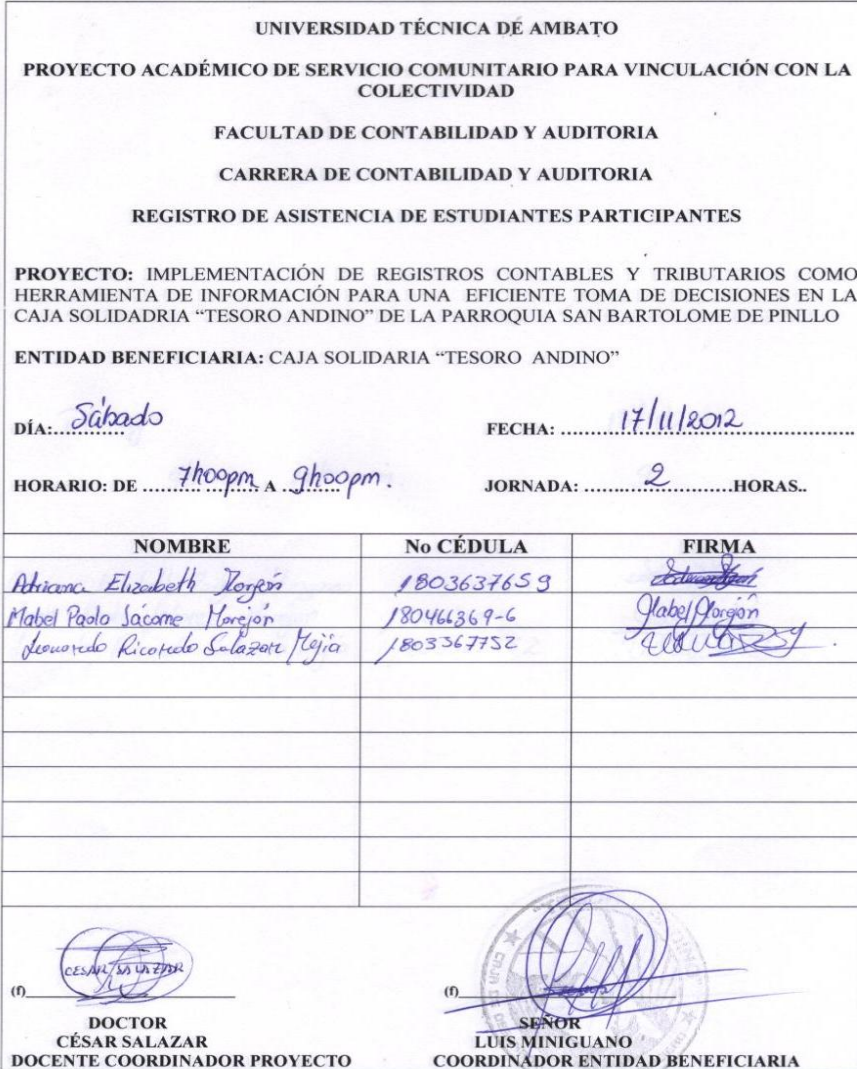 UNIVERSIDAD TÉCNICA DE AMBATO
PROYECTO ACADÉMICO DE SERVICIO COMUNITARIO PARA VINCULACIÓN CON LA
COLECTIVIDAD
FACULTAD DE CONTABILIDAD Y AUDITORIA
CARRERA DE CONTABILIDAD Y AUDITORIA
REGISTRO DE ASISTENCIA DE ESTUDIANTES PARTICIPANTES
PROYECTO: IMPLEMENTACIÓN DE REGISTROS CONTABLES Y TRIBUTARIOS COMO
HERRAMIENTA DE INFORMACIÓN PARA UNA EFICIENTE TOMA DE DECISIONES EN LA
CAJA SOLIDADRIA “TESORO ANDINO” DE LA PARROQUIA SAN BARTOLOME DE PINLLO
ENTIDAD BENEFICIARIA: CAJA SOLIDARIA “TESORO ANDINO”
DÍA: Sábado FECHA: 17/11/2012
HORARIO: DE 7h00pm A 9h00pm. JORNADA: 2 HORAS..
NOMBRE No CÉDULA FIRMA
Adriana Elizabeth 1803637659
Mabel Paola Jácome Morejón 180466369-6 Mabel Morejón
Leonardo Ricardo Salazar Mejía 1803367752
CESAR SALAZAR
(f) (f)
DOCTOR SEÑOR
CÉSAR SALAZAR LUIS MINIGUANO
DOCENTE COORDINADOR PROYECTO COORDINADOR ENTIDAD BENEFICIARIA